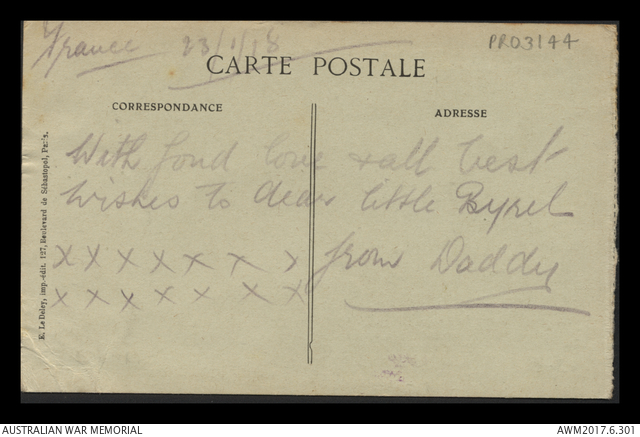 France 23/1/18
PR03144
CARTE POSTALE
CORRESPONDANCE
ADRESSE
With fond love + all best
wishes to dear little Byrel
x x x x x x x from Daddy
x x x x x x x
E. Le Deley, imp.-édit. 127, Boulevard de Sébastopol, Paris.
AUSTRALIAN WAR MEMORIAL
AWM2017.6.301